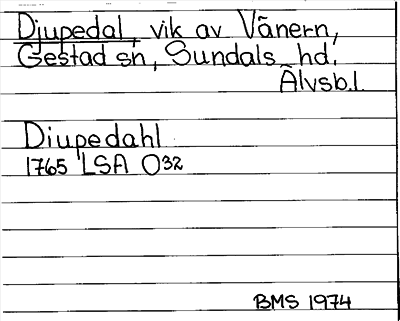 Djupedal, vik av Vänern,
Gestad sn, Sundals hd.
Älvsb.l.
Diupedahl
1765 LSA O32
BMS 1974